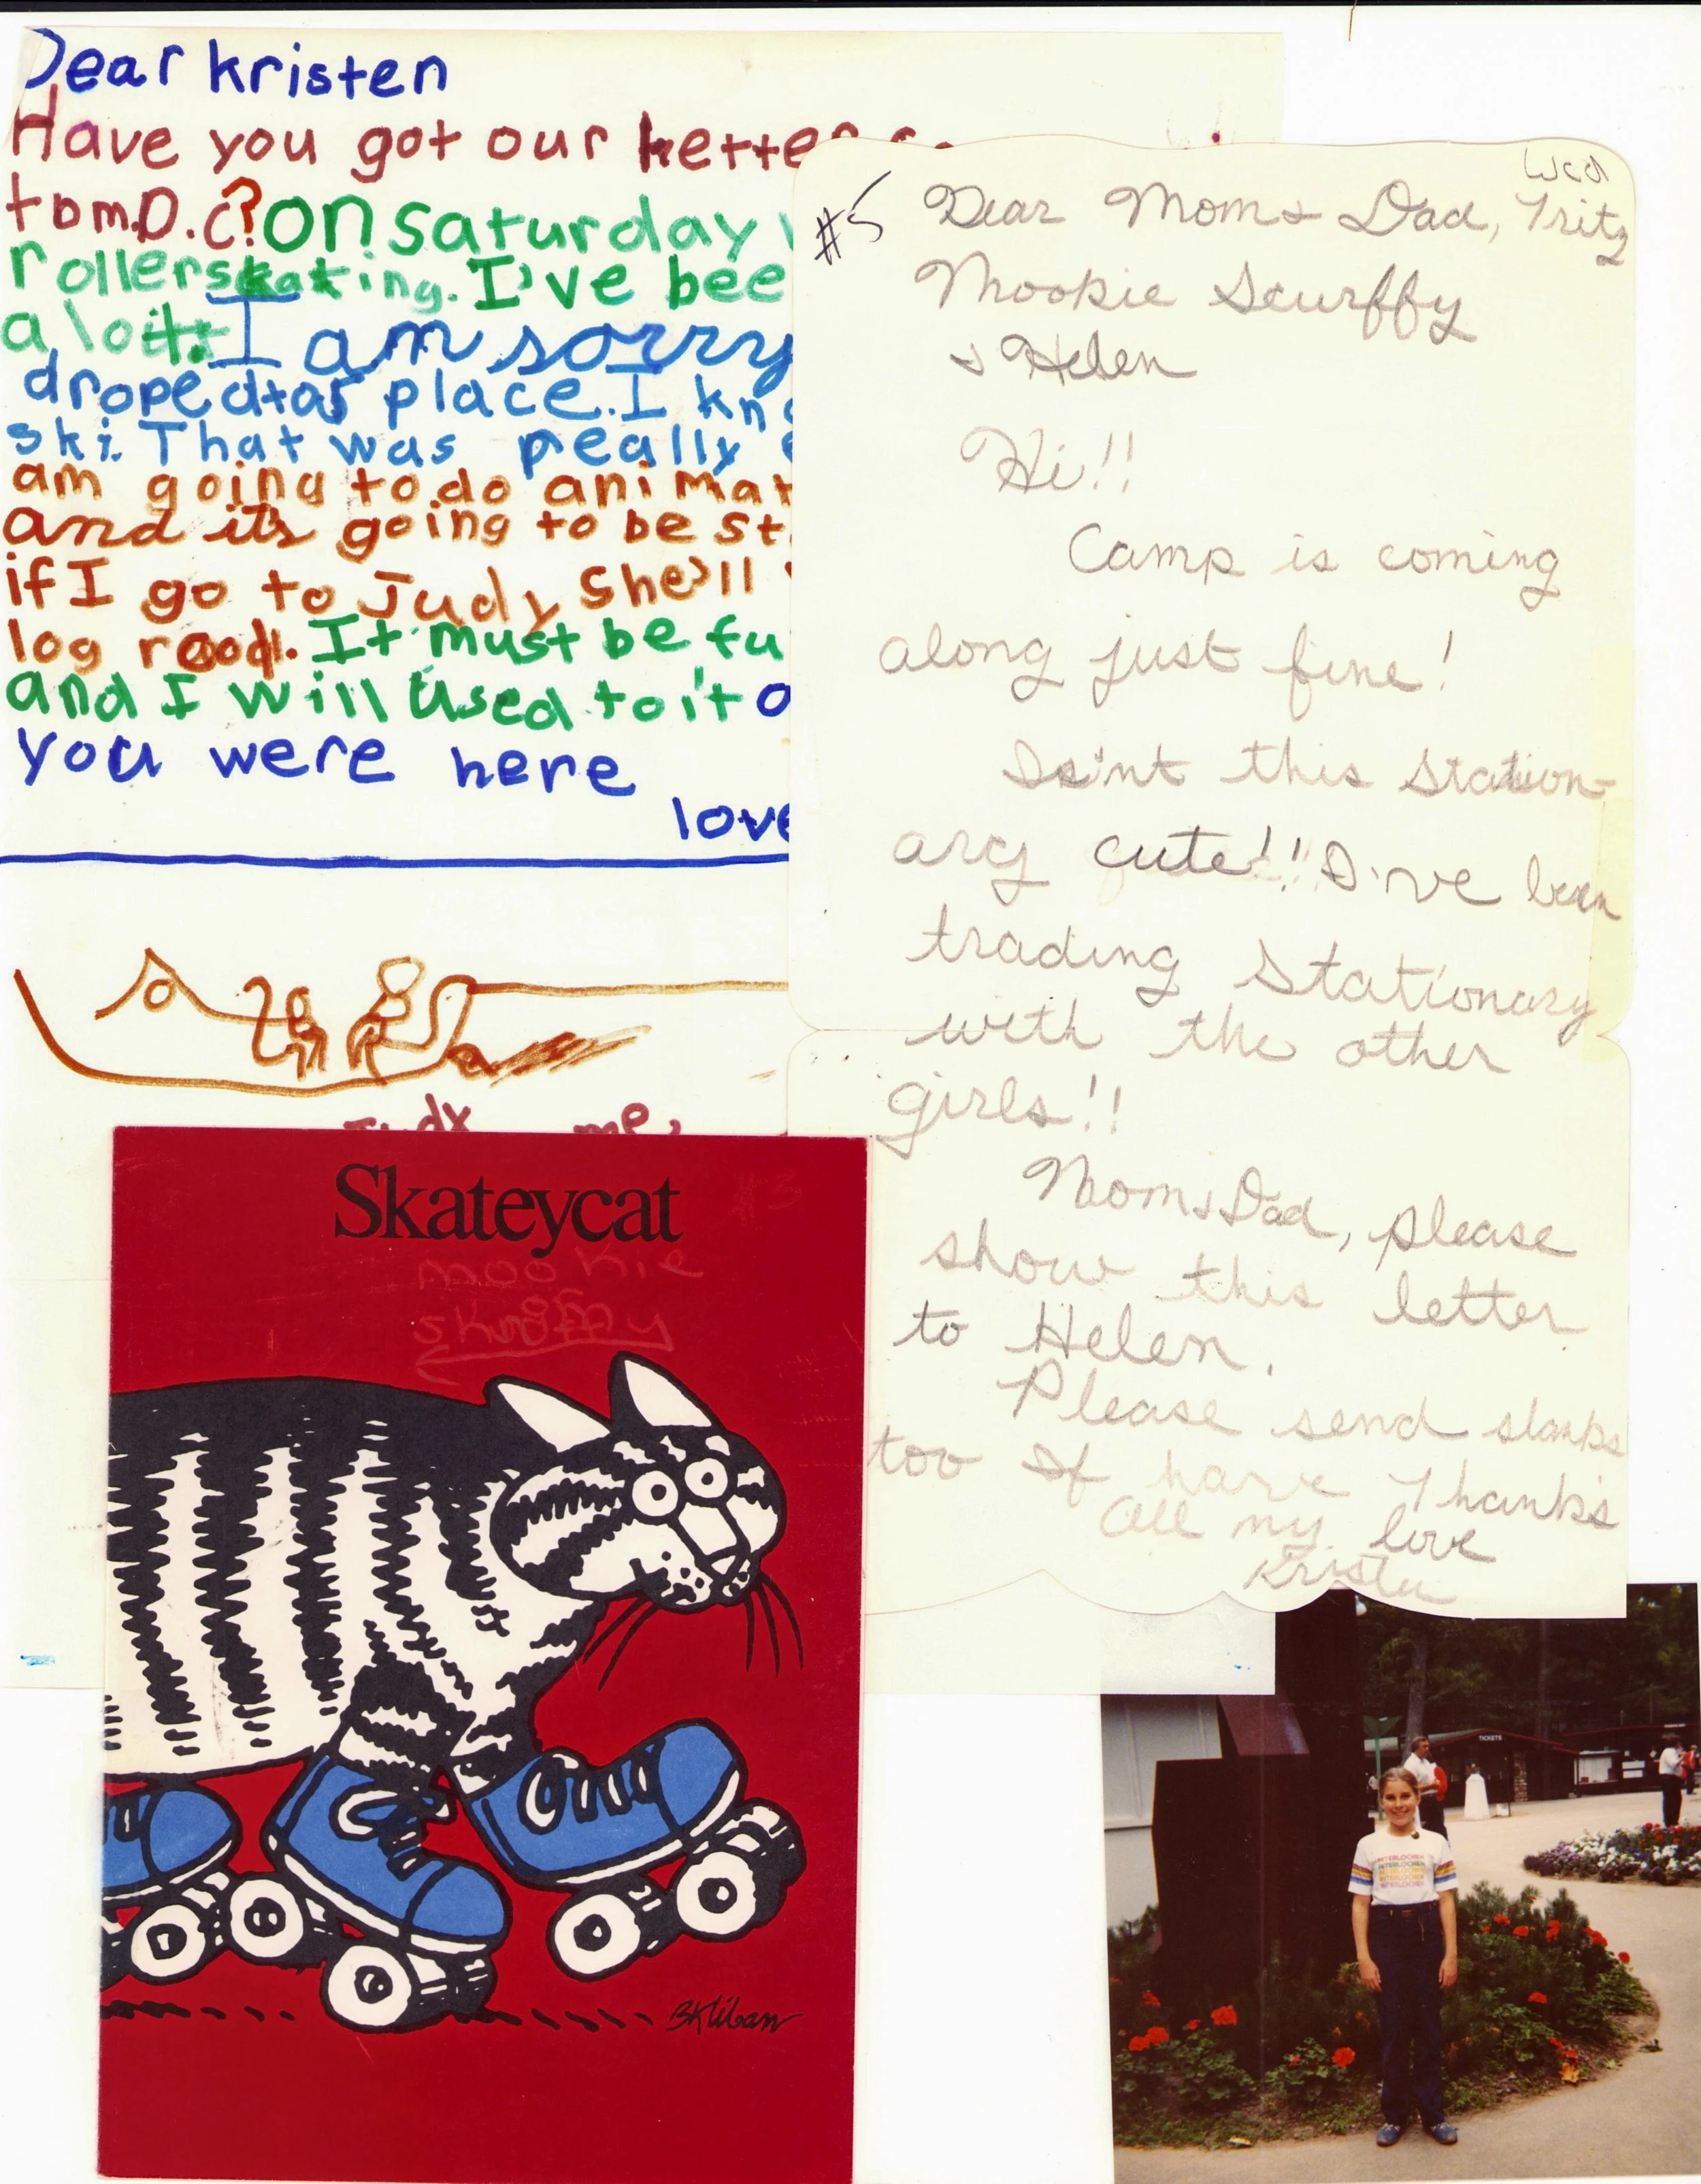 Dear kristen
Have you got our letter
tom D.C? on saturday
rollerskating. I've bee
alot. I am sorry
droped tar place. I kn
ski. That was really
am going to do animat
and it's going to be st
if I go to Judy she'll
log rood. It must be fu
and I will used to it o
you were here
love
Judy me,
Wed
#5 Dear Mom & Dad, Fritz
Mookie Scurffy
& Helen
Hi!!
Camp is coming
along just fine!
Is'nt this station-
ary cute!! I've been
trading stationary
with the other
girls!!
Mom & Dad, please
show this letter
to Helen.
Please send slaks
too If have Thank's
All my love
Kristen
Skateycat
#3
mookie
BKliban
TICKETS
INTERLOCHEN
INTERLOCHEN
INTERLOCHEN
INTERLOCHEN